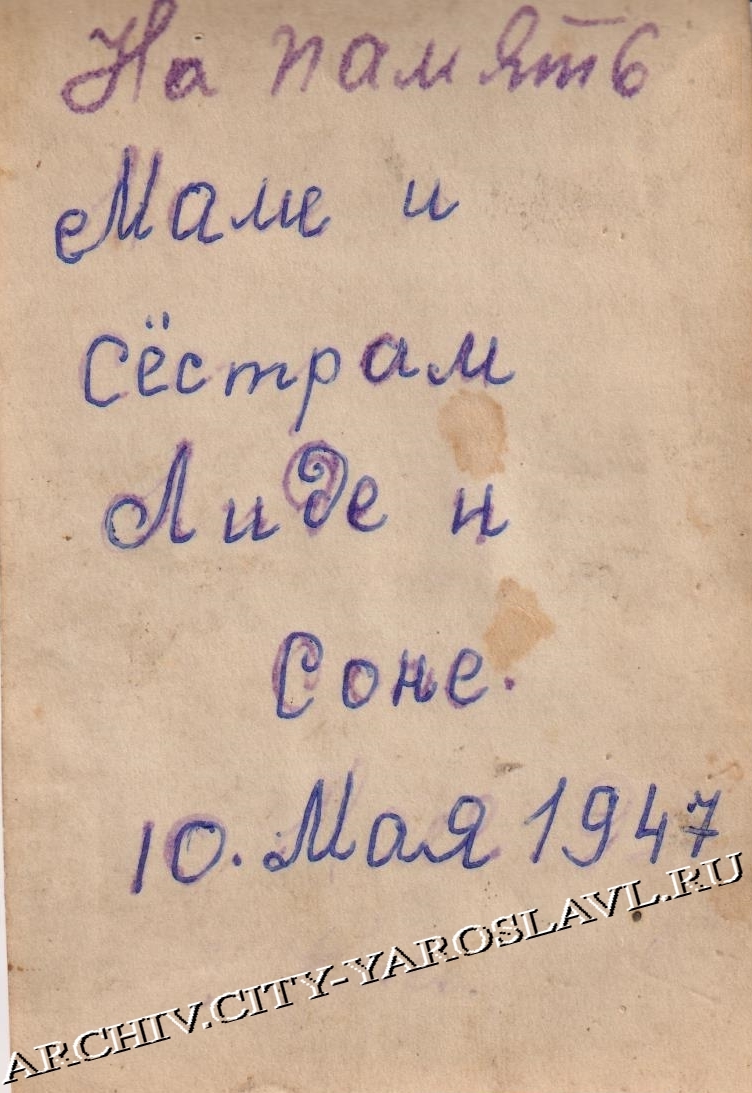 На память
Маме и
сёстрам
Лиде и
Соне.
10. Мая 1947
ARCHIV.CITY-YAROSLAVL.RU